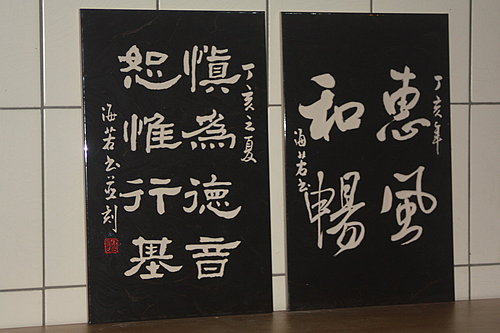 丁亥之夏
慎為德音
恕惟行基
海若书並刻
丁亥年
惠風
和暢
海若书